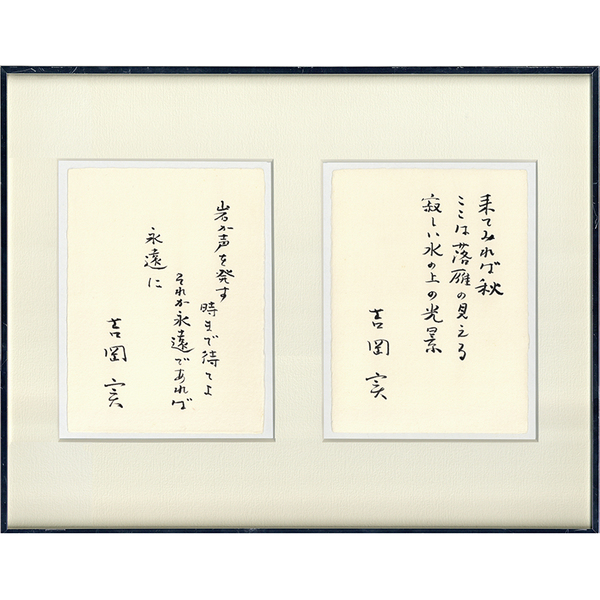 来てみれば秋
ここは落雁の見える
寂しい水の上の光景
吉岡実
岩が声を発す
時まで待てよ
それが永遠であれば
永遠に
吉岡実